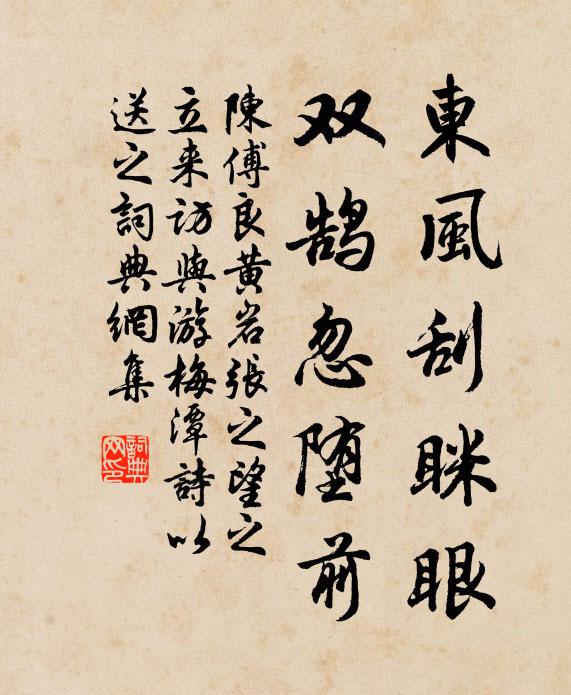 東風刮眯眼
双鹄忽堕前
陳傅良黄岩張之望之
立来訪與游梅潭詩以
送之詞典網集
詞典
网印